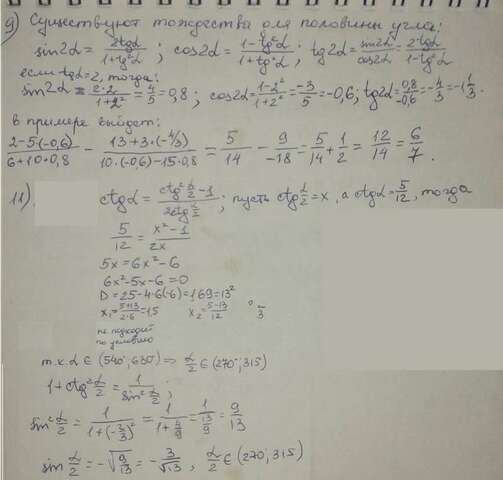 9) Существуют тождества для половины угла:
sin2α = 2tgα/(1+tg²α); cos2α = (1-tg²α)/(1+tg²α); tg2α = sin2α/cos2α = 2tgα/(1-tg²α)
если tgα=2, тогда:
sin2α = 2·2/(1+2²) = 4/5 = 0,8; cos2α = (1-2²)/(1+2²) = -3/5 = -0,6; tg2α = 0,8/-0,6 = -4/3 = -1 1/3.
в примере выйдет:
(2-5·(-0,6))/(6+10·0,8) - (13+3·(-4/3))/(10·(-0,6)-15·0,8) = 5/14 - 9/-18 = 5/14 + 1/2 = 12/14 = 6/7.
11)
ctgα = (ctg²α/2 - 1)/(2ctgα/2); пусть ctgα/2 = x, а ctgα = 5/12, тогда
5/12 = (x²-1)/2x
5x = 6x²-6
6x²-5x-6=0
D = 25-4·6(-6) = 169 = 13²
x₁ = (5+13)/(2·6) = 1,5 x₂ = (5-13)/12
не подходит
по условию
т.к. α ∈ (540°; 630°) ⇒ α/2 ∈ (270°; 315)
1+ctg²α/2 = 1/(sin²α/2);
sin²α/2 = 1/(1+(-2/3)²) = 1/(1+4/9) = 1/(13/9) = 9/13
sin α/2 = -√(9/13) = -3/√13, α/2 ∈ (270°; 315)